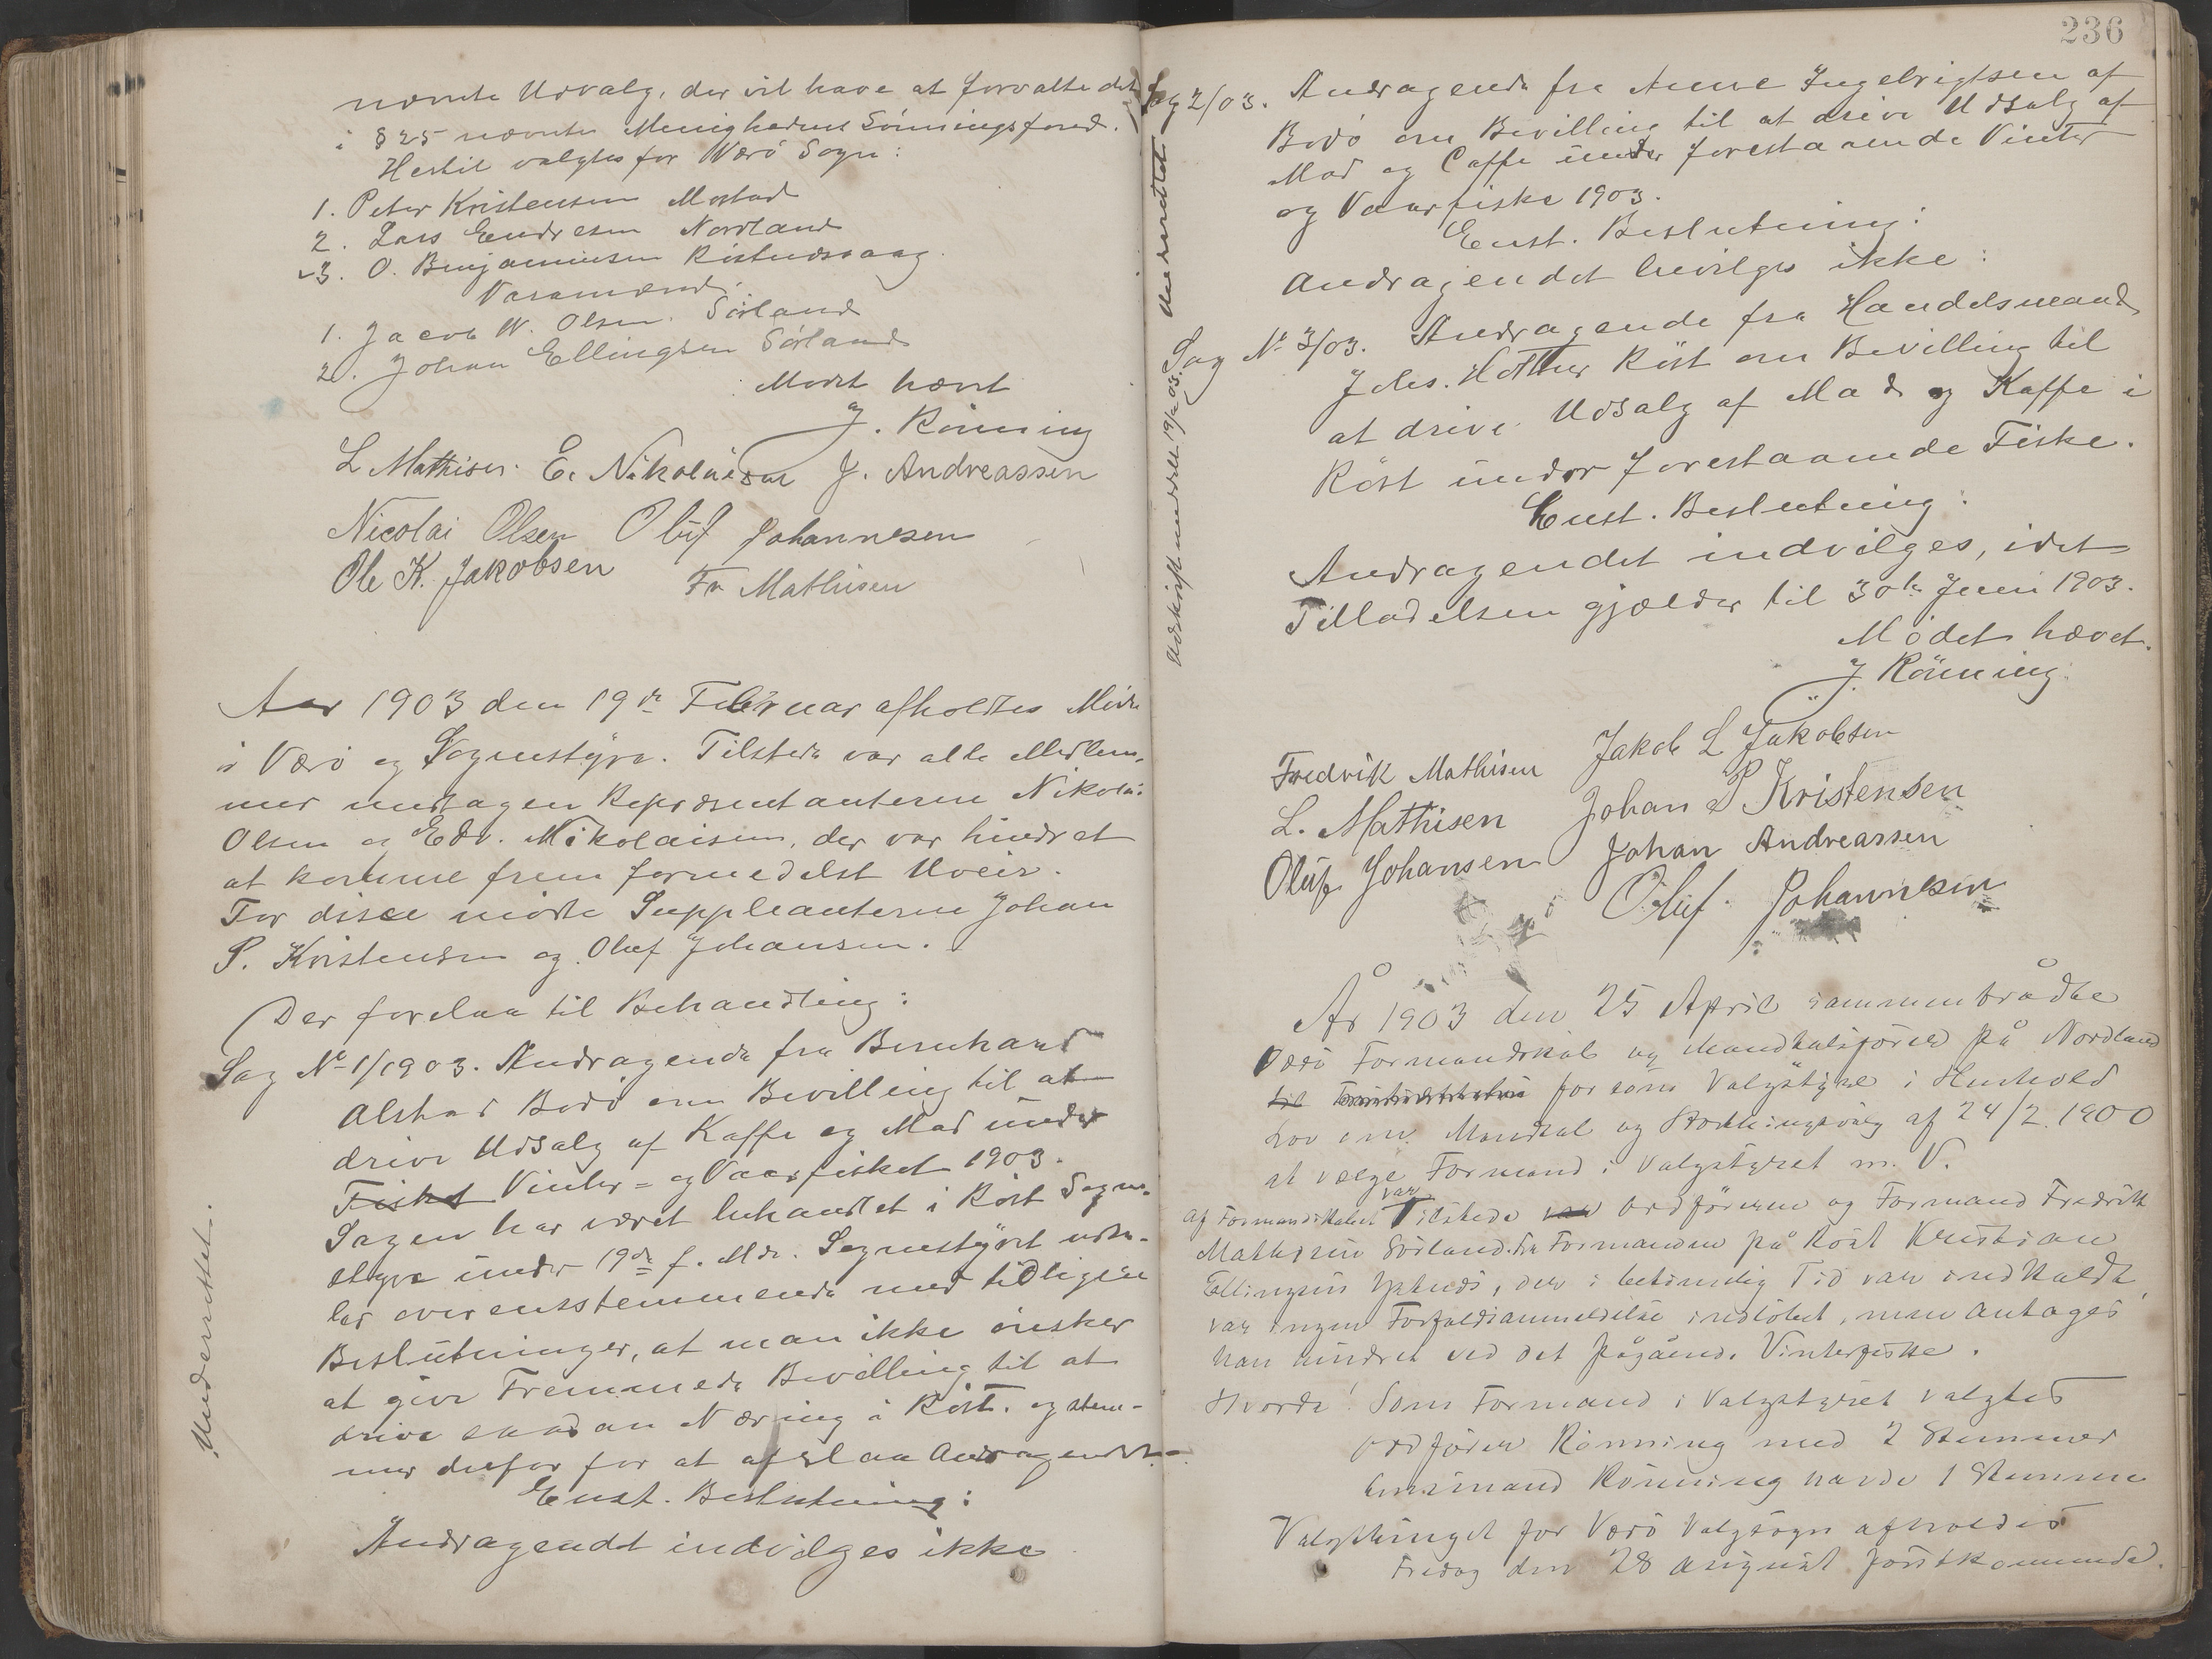 nævnte Udvalg, der vil have at forvalte det
i § 25 nævnte Menighedens Soningsfond.
Hertil valgtes for Værö Sogn:
1. Peter Kristensen Mostad
2. Lars Endresen Nordland
3. O. Benjaminsen Röstnæsvaag
Varamænd:
1. Jacob W. Olsen Sörland
2. Johan Ellingsen Sörland
Mødet hævet
J. Rönning
L Mathisen. E. Nikolaisen J. Andreassen
Nicolai Olsen Oluf Johannesen
Ole K. Jakobsen Fr Mathisen
Aar 1903 den 19de Februar afholdtes Möde
i Værö og Sognestyre. Tilstede var alle Medlem-
mer undtagen Repræsentanterne Nikolai
Olsen og Edv. Nikolaisen, der var hindret
at komme frem formedelst Uveir.
For disse mödte Suppleanterne Johan
P. Kristensen og Oluf Johansen.
Der forelaa til Behandling:
Sag No 1/1903. Andragende fra Bernhard
Alstad Bodö om Bevilling til at
drive Udsalg af Kaffe og Mad under
Fisket Vinter- og Vaarfisket 1903.
Sagen har været behandlet i Röst Sogne-
styre under 19de f. Md. Sognestyret udta-
ler overensstemmende med tidligere
Beslutninger, at man ikke önsker
at give Fremmede Bevilling til at
drive saadan Næring i Röst. og stem-
mer derfor for at afslaa Andragendet.
Enst. Beslutning:
Andragendet indvilges ikke
Underrettet.
236
Sag 2/03. Andragende fra Anne Ingebrigtsen af
Bodö om Bevilling til at drive Udsalg af
Mad og Caffe under forestaaende Vinter
og Vaarfiske 1903.
Enst. Beslutning:
Andragendet bevilges ikke:
Underrettet
Sag No 3/03. Andragende fra Handelsmand
Johs. Hother Röst om Bevilling til
at drive Udsalg af Mad og Kaffe i
Röst under forestaaende Fiske.
Enst. Beslutning:
Andragendet indvilges, idet
Tilladelsen gjælder til 30te Juni 1903.
Mödet hævet.
J. Rönning.
Udskrift meddelt 19/2 03.
Fredrik Mathisen Jakob L Jakobsen
L. Mathisen Johan P Kristensen
Oluf Johansen Johan Andreassen
Oluf Johannesen
År 1903 den 25 April sammentrådte
Værö Formandskab og Mandtalsförer på Nordland
til for som Valgstyre i Henhold
Lov om Mandtal og Storthingsvalg af 24/2 1900
at vælge Formand i Valgstyret m. V.
Af Formandskabet var Tilstede var Ordföreren og Formand Fredrik
Mathisen Sörland. Fra Formanden på Röst Kristian
Ellingsen Ystnæs, der i betimelig Tid var indkaldt,
var ingen Forfaldsanmeldelse indlöbet, men antages
han hindret ved det pågående Vinterfiske.
Hvorda! Som Formand i Valgstyret valgtes
Ordförer Rönning med 2 Stemmer
Lensmand Rönning havde 1 Stemme
Valgthinget for Værö Valgsogn afholdes
Fredag den 28 August förstkommende.